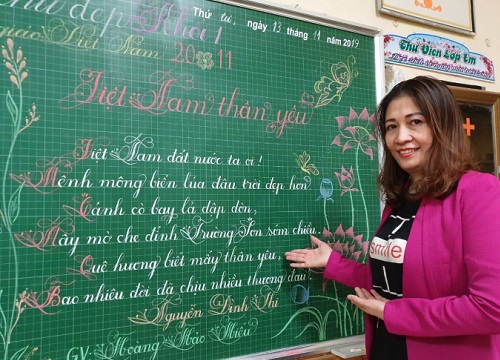 Thứ tư, ngày 13 tháng 11 năm 2019
chữ đẹp Khối 1
giáo Việt Nam 20-11
Việt Nam thân yêu
Việt Nam đất nước ta ơi!
Mênh mông biển lúa đâu trời đẹp hơn
Cánh cò bay lả dập dờn,
Mây mờ che đỉnh Trường Sơn sớm chiều.
Quê hương biết mấy thân yêu,
Bao nhiêu đời đã chịu nhiều thương đau
Nguyễn Đình Thi
GV: Hoàng Hảo Hiếu
Thư Viện Lớp Em
smile